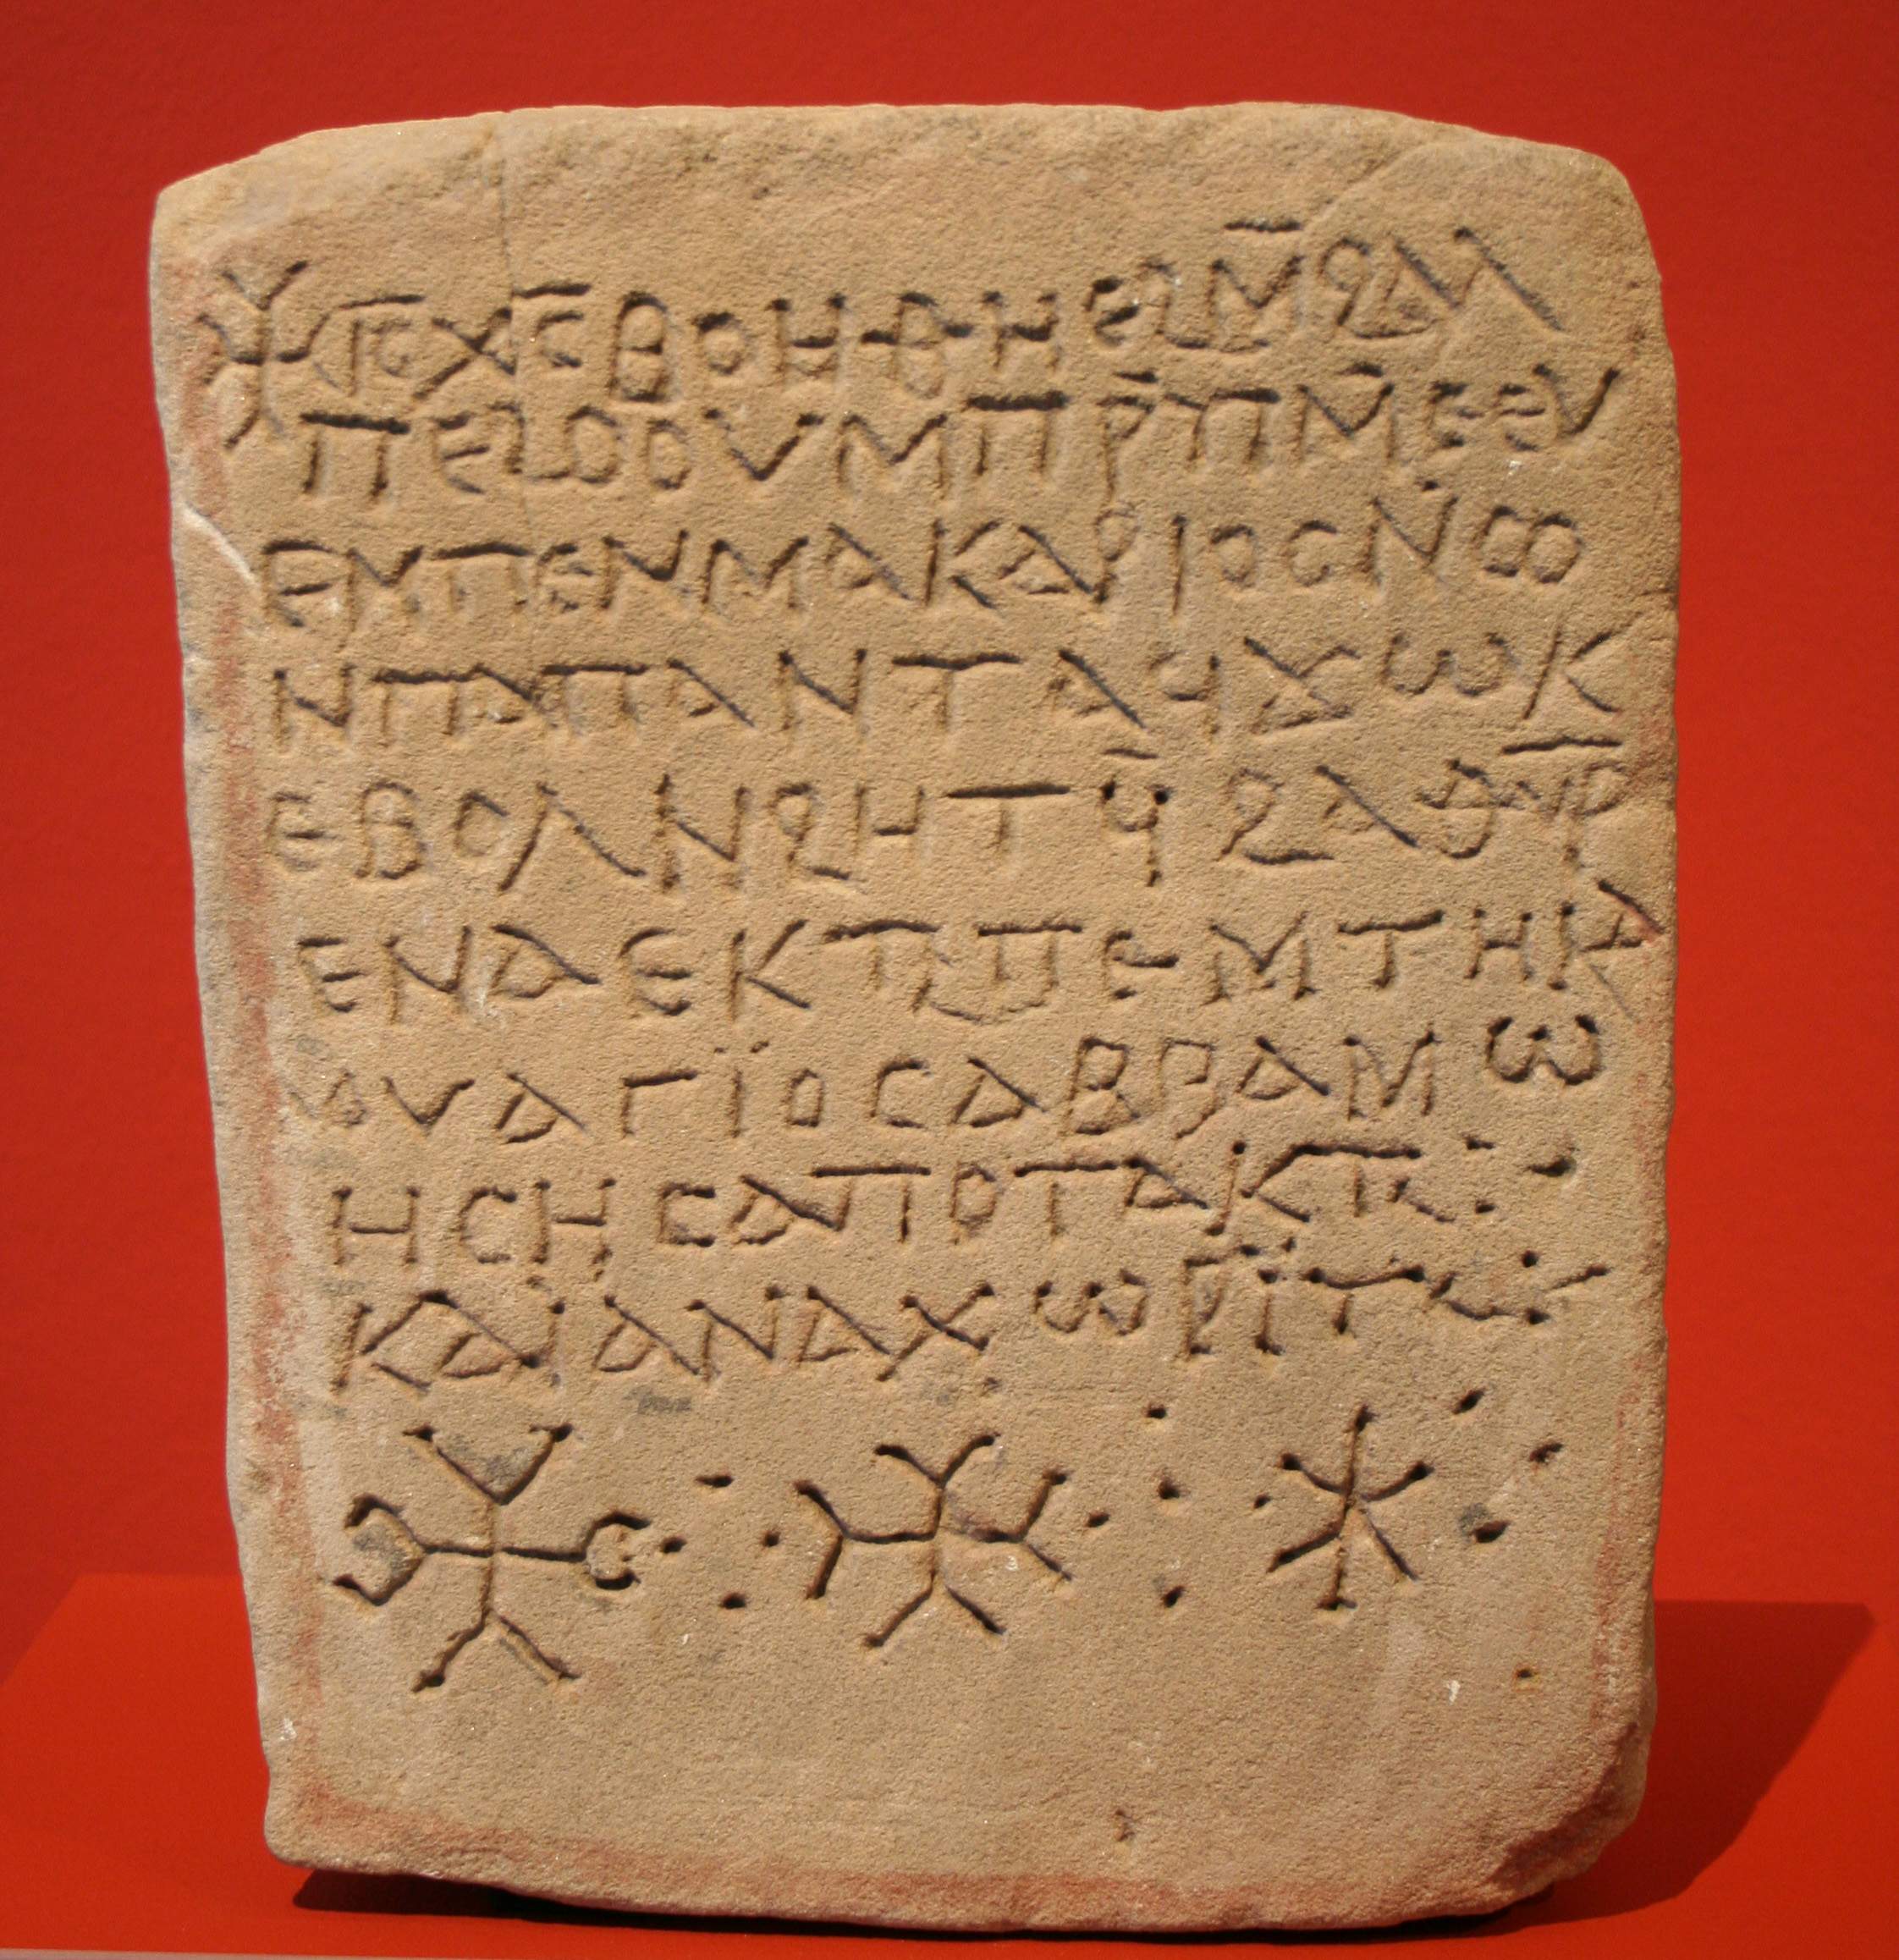 ⲓ̅ⲥ̅ ⲭ̅ⲥ̅ ⲃⲟⲏⲑⲏ ⲉϩⲙ̅ϩⲁⲗ
ⲡⲉϩⲟⲟⲩ ⲙⲡⲣ̅ⲡⲙ̅ⲉⲉⲩ
ⲉ ⲙⲡⲉⲛⲙⲁⲕⲁⲣⲓⲟⲥ ⲛ̇ⲥⲟ
ⲛ ⲡⲁⲡⲁ ⲛⲧⲁϥϫⲱⲕ
ⲉⲃⲟⲗ ⲛϩⲏⲧϥ̅ ϩⲁⲑⲩⲣ̅
ⲉⲛⲇⲉⲕⲧⲓ ⲡⲉⲙⲧⲏ ⲕⲁ
ⲟⲩ ⲁⲅⲓ̈ⲟⲥ ⲁⲃⲣⲁⲙ ⲱ
ⲏⲥⲏⲥ ⲁⲡⲟⲧⲁⲕⲧ
ⲕⲁⲓ ⲁⲛⲁⲭⲱⲣⲓ̈ⲧ